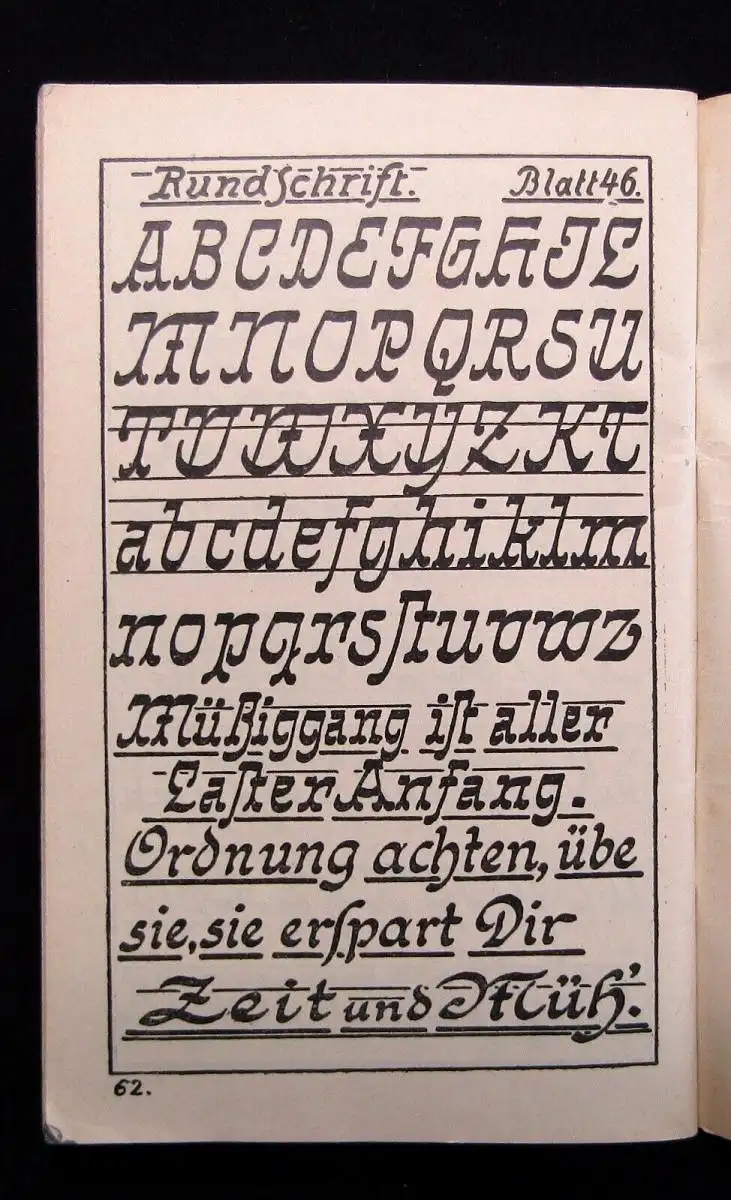 Rundſchrift. Blatt 46.
ABCDEFGHJL
MNOPQRSU
TVWXYZKT
abcdefghiklm
nopqrsſtuvwz
Müßiggang iſt aller
Laſter Anfang.
Ordnung achten, übe
sie, sie erſpart Dir
Zeit und Müh'.
62.